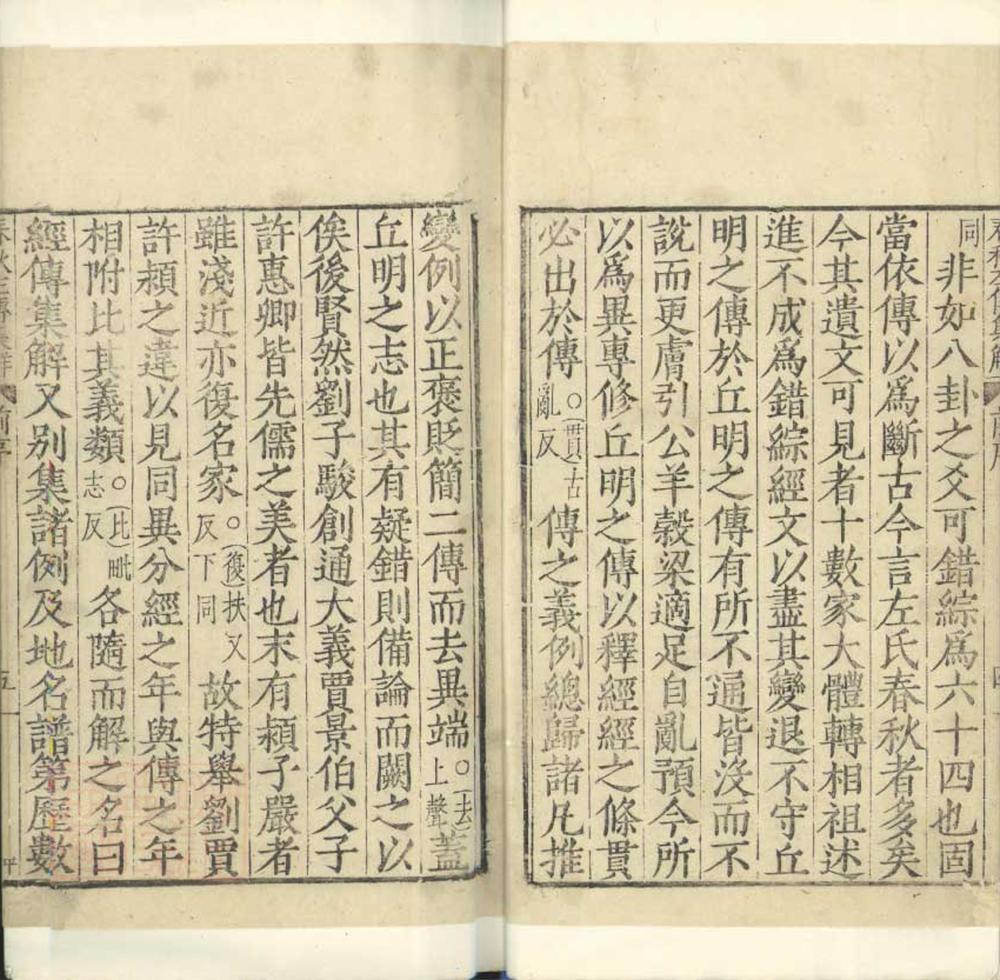 同非如八卦之爻可錯綜爲六十四也固
當依傳以爲斷古今言左氏春秋者多矣
今其遺文可見者十數家大體轉相祖述
進不成爲錯綜經文以盡其變退不守丘
明之傳於丘明之傳有所不通皆沒而不
說而更膚引公羊穀梁適足自亂預今所
以爲異專修丘明之傳以釋經經之條貫
必出於傳○(貫)古亂反傳之義例總歸諸凡推
變例以正褒貶簡二傳而去異端○(去)上聲蓋
丘明之志也其有疑錯則備論而闕之以
俟後賢然劉子駿創通大義賈景伯父子
許惠卿皆先儒之美者也末有潁子嚴者
雖淺近亦復名家○(復)扶又反下同故特舉劉賈
許潁之違以見同異分經之年與傳之年
相附比其義類○(比)毗志反各隨而解之名曰
經傳集解又別集諸例及地名譜第歷數